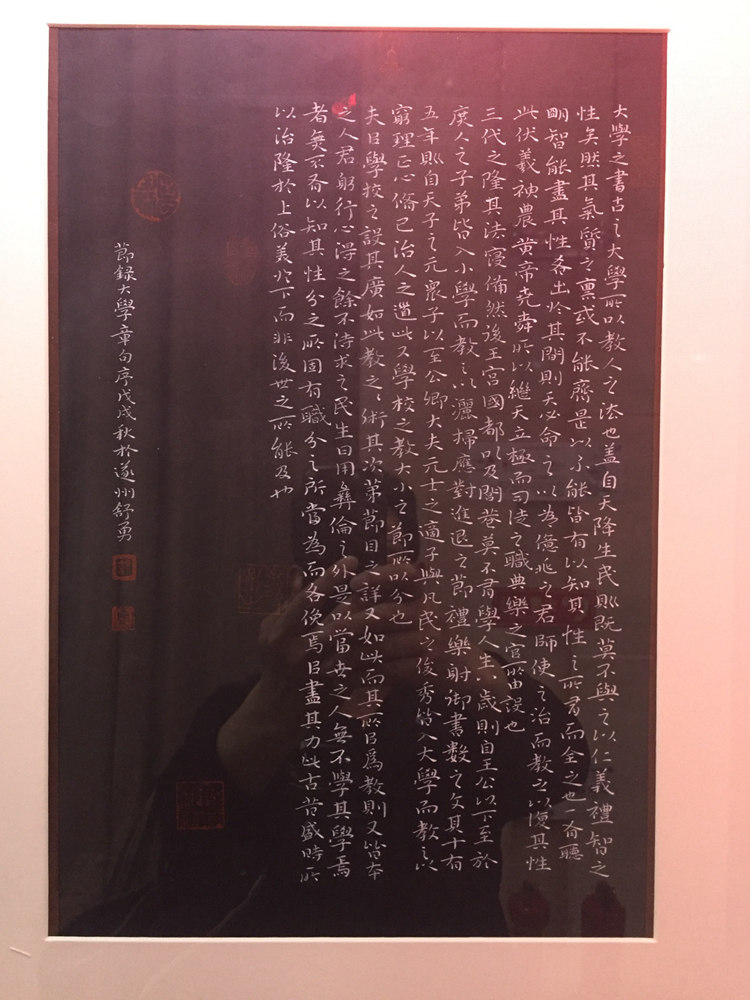 大學之書古之大學所以教人之法也蓋自天降生民則既莫不與之以仁義禮智之
性矣然其氣質之稟或不能齊是以不能皆有以知其性之所有而全之也一有聰
明智能盡其性者出於其間則天必命之以為億兆之君師使之治而教之以復其性
此伏羲神農黄帝堯舜所以繼天立極而司徒之職典樂之官所由設也
三代之隆其法寖備然後王宮國都以及閭巷莫不有學人生八歲則自王公以下至於
庶人之子弟皆入小學而教之以灑掃應對進退之節禮樂射御書數之文其十有
五年則自天子之元衆子以至公卿大夫元士之適子與凡民之俊秀皆入大學而教之以
窮理正心脩己治人之道此又學校之教大小之節所以分也
夫以學校之設其廣如此教之之術其次第節目之詳又如此而其所以爲教則又皆本
之人君躬行心得之餘不待求之民生日用彝倫之外是以當世之人無不學其學焉
者無不有以知其性分之所固有職分之所當為而各俛焉以盡其力此古昔盛時所
以治隆於上俗美於下而非後世之所能及也
節錄大學章句序戊戌秋於遂州舒勇